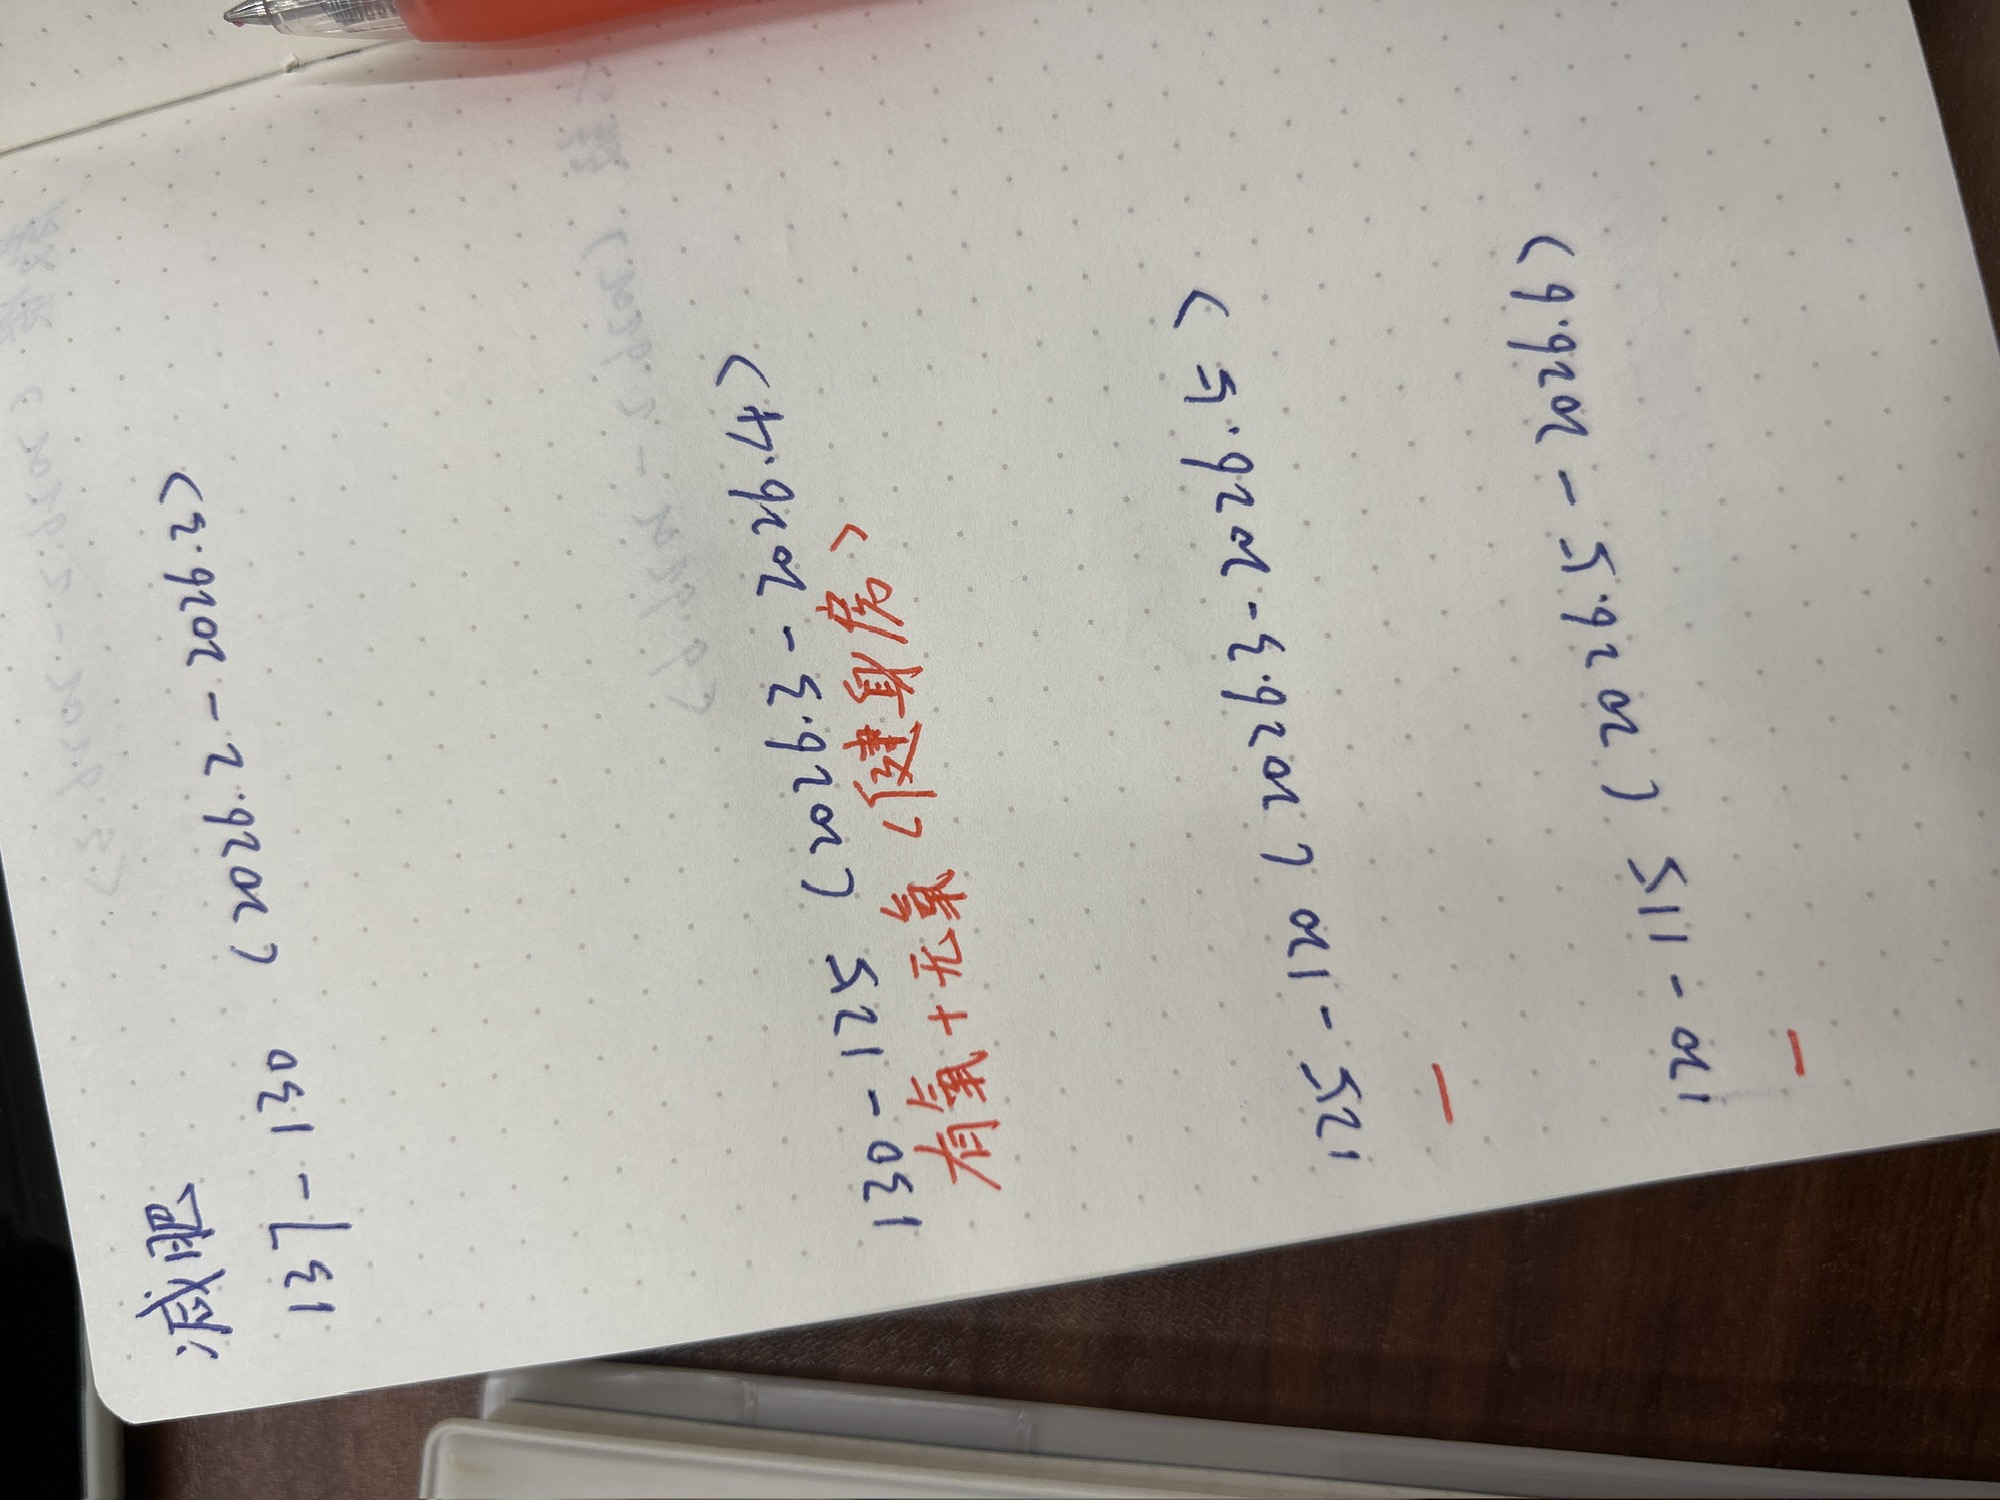 减肥
137 - 130 (2026.2 - 2026.3)
130 - 125 (2026.3 - 2026.4)
有氧+无氧(健身房)
125 - 120 (2026.3 - 2026.5)
一
120 - 115 (2026.5 - 2026.6)
一